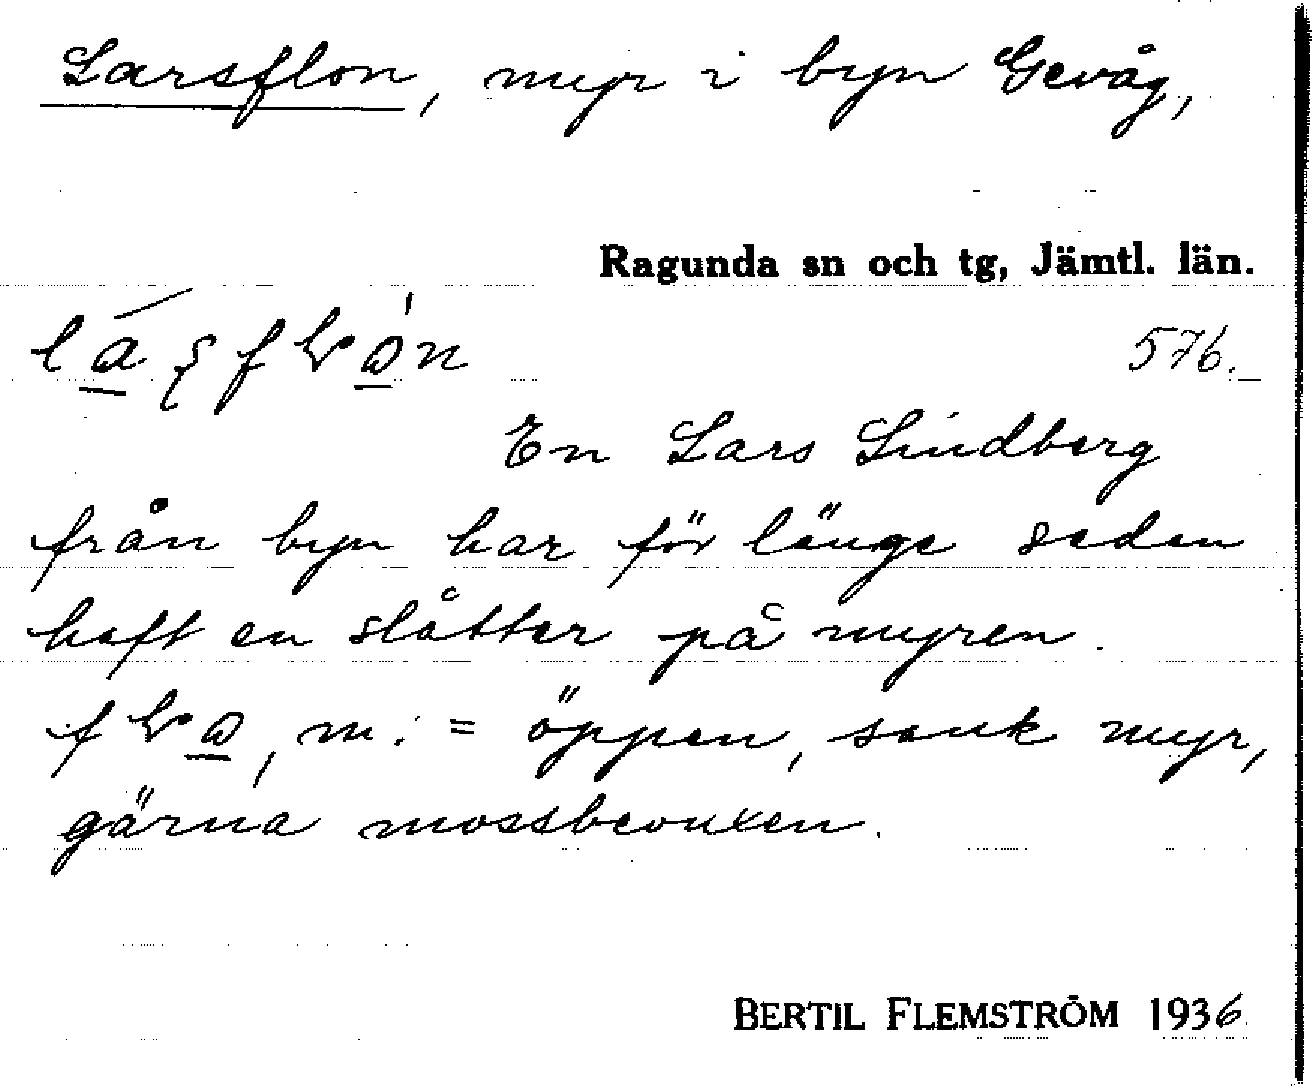 Larsflon, myr i byn Gevåg,
Ragunda sn och tg, Jämtl. län.
576.
En Lars Lindberg
från byn har för länge sedan
haft en slåtter på myren.
m. = öppen, sank myr,
gärna mossbevuxen.
BERTIL FLEMSTRÖM 1936